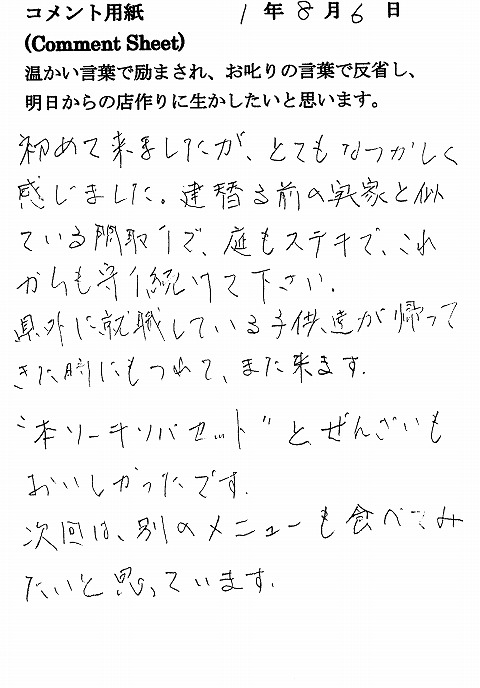 コメント用紙 1年8月6日
(Comment Sheet)
温かい言葉で励まされ、お叱りの言葉で反省し、
明日からの店作りに生かしたいと思います。
初めて来ましたが、とてもなつかしく
感じました。建替る前の実家と似
ている間取りで、庭もステキで、これ
からも守り続けて下さい.
県外に就職している子供達が帰って
きた時にもつれて、また来ます.
"本ソーキソバセット"とぜんざいも
おいしかったです.
次回は、別のメニューも食べてみ
たいと思っています.